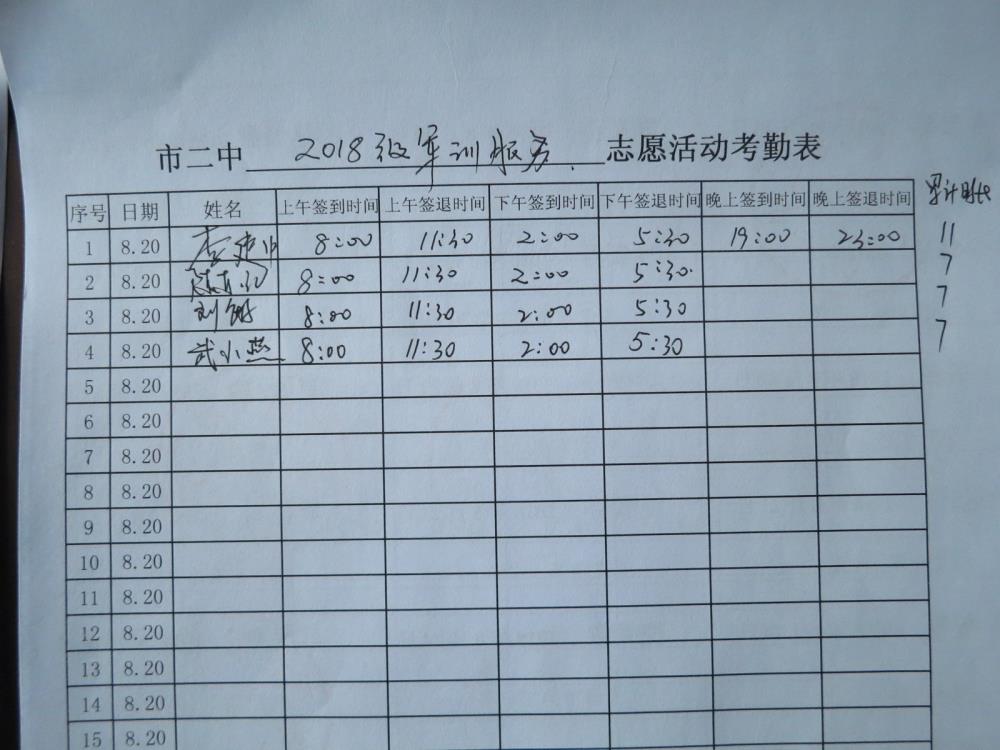 市二中 2018级军训服务 志愿活动考勤表
序号 日期 姓名 上午签到时间 上午签退时间 下午签到时间 下午签退时间 晚上签到时间 晚上签退时间 累计时长
1 8.20 李建中 8:00 11:30 2:00 5:30 19:00 23:00 11
2 8.20 8:00 11:30 2:00 5:30 7
3 8.20 刘 8:00 11:30 2:00 5:30 7
4 8.20 武小燕 8:00 11:30 2:00 5:30 7
5 8.20
6 8.20
7 8.20
8 8.20
9 8.20
10 8.20
11 8.20
12 8.20
13 8.20
14 8.20
15 8.20